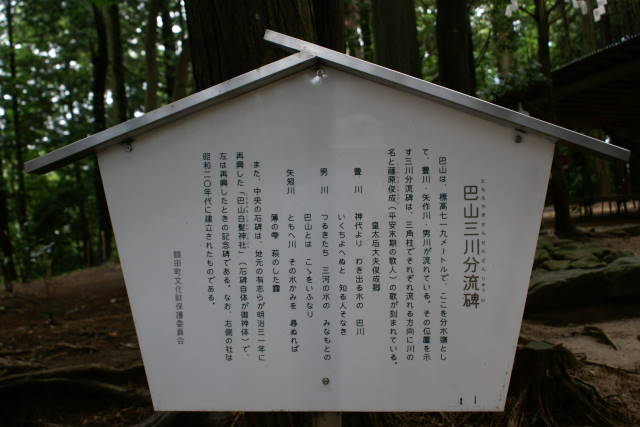 巴山三川分流碑
巴山は、標高七一九メートルで、ここを分水嶺とし
て、豊川・矢作川・男川が流れている。その位置を示
す三川分流碑は、三角柱でそれぞれ流れる方向に川の
名と藤原俊成（平安末期の歌人）の歌が刻まれている。
皇太后大夫俊成郷
豊川 神代より わき出る水の 巴川
いくちよへぬと 知る人そなき
男川 つるきたち 三河の水の みなもとの
巴山とは こゝをいふなり
矢矧川 ともへ川 その水かみを 尋ぬれば
薄の雫 萩のした露
また、中央の石碑は、地元の有志らが明治三一年に
再興した「巴山白髭神社」（石碑自体が御神体）で、
左は再興したときの記念碑である。なお、右側の社は
昭和二〇年代に建立されたものである。
額田町文化財保護委員会